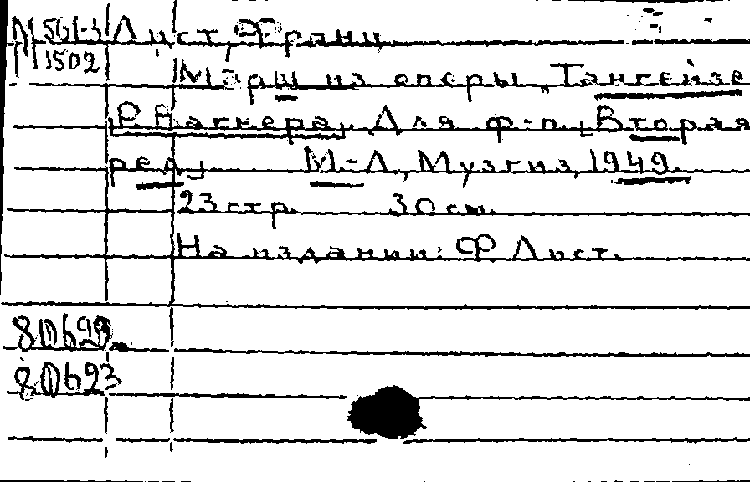 М 561-3 Лист, Франц
М 1502
Марш из оперы „Тангейзе
[Р. Вагнера] Для ф-п. [Вторая
ред.] М.-Л., Музгиз, 1949.
23 стр. 30 см.
На издании: Ф. Лист.
80699
80693